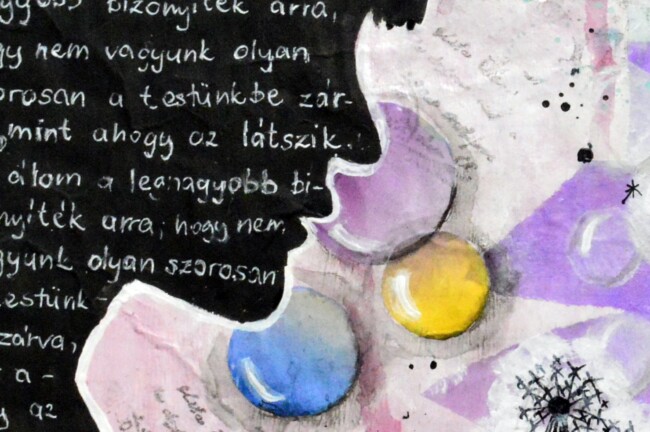 bizonyíték arra,
gy nem vagyunk olyan
orosan a testünkbe zár-
, mint ahogy az látszik.
álom a legnagyobb bi-
nyíték arra, hogy nem
gyunk olyan szorosan
testünk-
zárva,
a -
az